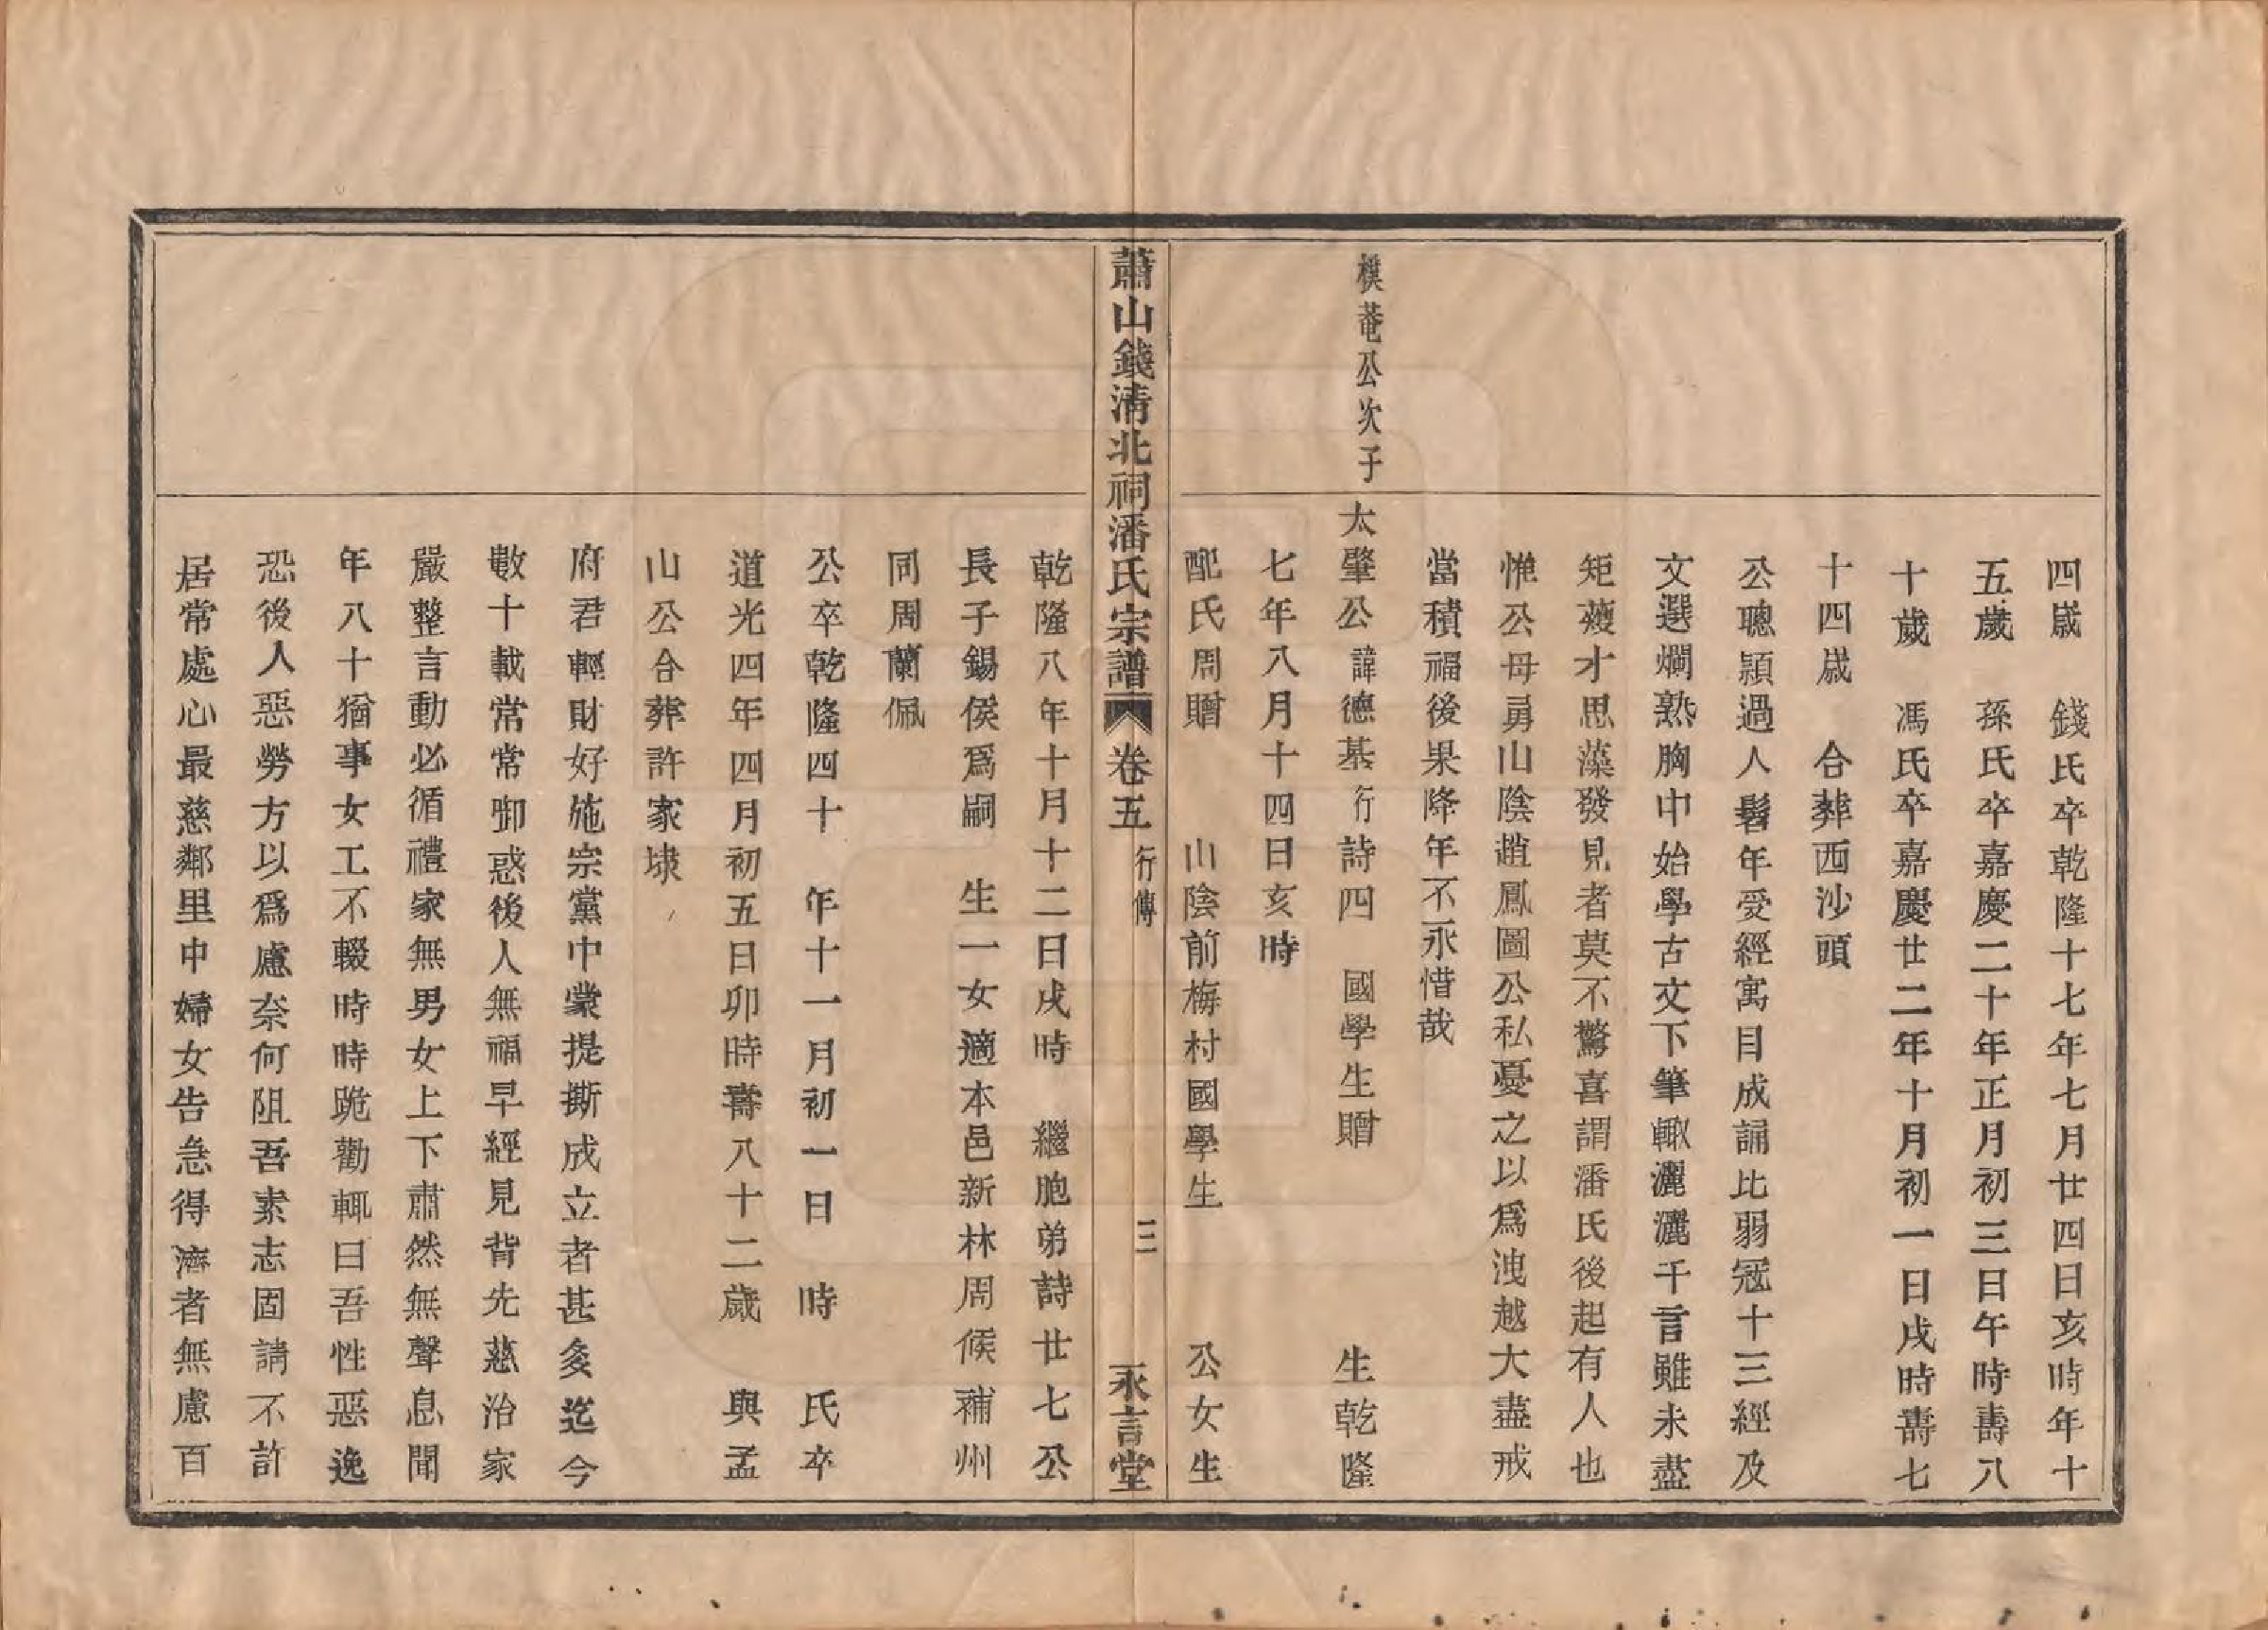 四歲　錢氏卒乾隆十七年七月廿四日亥時年十
五歲　孫氏卒嘉慶二十年正月初三日午時壽八
十歲　馮氏卒嘉慶廿二年十月初一日戌時壽七
十四歲　合葬西沙頭
公聰穎過人髫年受經寓目成誦比弱冠十三經及
文選爛熟胸中始學古文下筆輙灑灑千言雖未盡
矩薉才思藻發見者莫不驚喜謂潘氏後起有人也
惟公母舅山陰趙鳳圖公私憂之以爲洩越大盡戒
當積福後果降年不永惜哉
樸菴公次子
太肇公諱德基行詩四　國學生贈　生乾隆
七年八月十四日亥時
配氏周贈　山陰前梅村國學生　公女生
蕭山錢清北祠潘氏宗譜　卷五　行傳　三　永言堂
乾隆八年十月十二日戌時　繼胞弟詩廿七公
長子錫侯爲嗣　生一女適本邑新林周候補州
同周蘭佩
公卒乾隆四十　年十一月初一日　時　氏卒
道光四年四月初五日卯時壽八十二歲　與孟
山公合葬許家埭
府君輕財好施宗黨中蒙提撕成立者甚夋迄今
數十載常常御惑後人無福早經見背先慈治家
嚴整言動必循禮家無男女上下肅然無聲息聞
年八十猶事女工不輟時時跪勸輒曰吾性惡逸
恐後人惡勞方以爲慮奈何阻吾素志固請不許
居常處心最慈鄰里中婦女告急得濟者無慮百